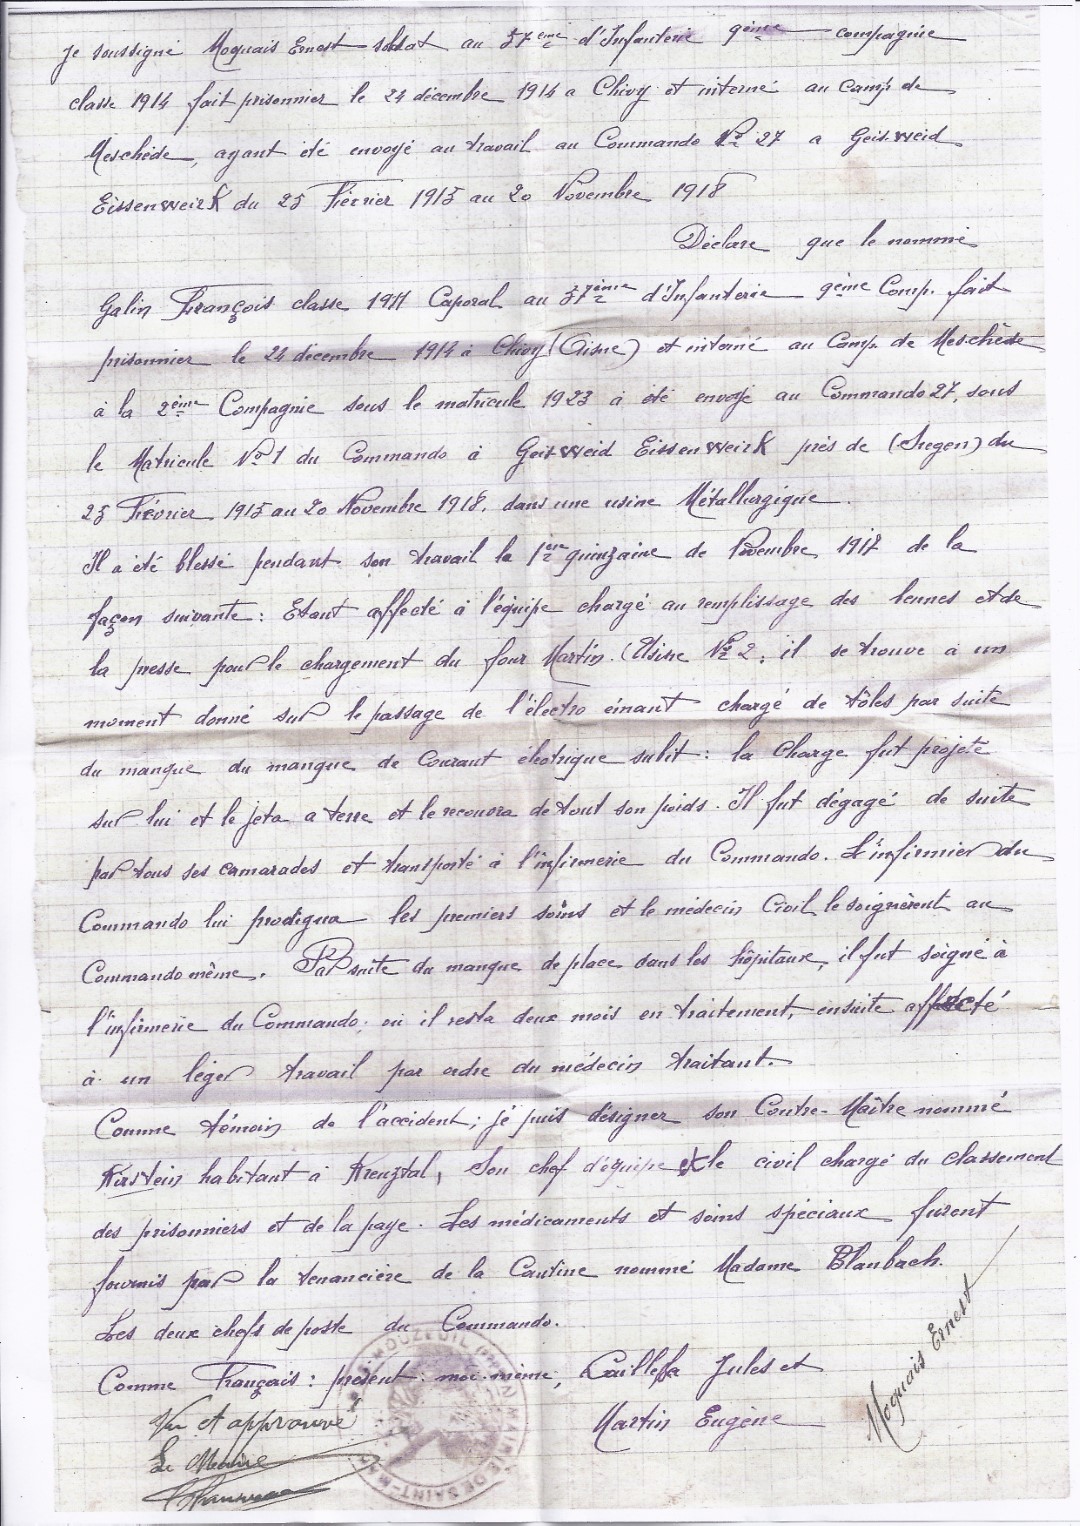 Je soussigné Moquais Ernest soldat au 37ème d'Infanterie 9ème compagnie
classe 1914 fait prisonnier le 24 décembre 1914 a Chivy et interné au Camp de
Meschède, ayant été envoyé au travail au Commando No 27 a Geisweid
Eissenweirk du 25 Février 1915 au 20 Novembre 1918
Déclare que le nommé
Galin François classe 1911 Caporal au 37ème d'Infanterie 9ème Comp. fait
prisonnier le 24 décembre 1914 à Chivy (Aisne) et interné au Camp de Meschède
à la 2ème Compagnie sous le matricule 1923 à été envoyé au Commando 27, sous
le Matricule No 1 du Commando à Geisweid Eissenweirk près de (Siegen) du
25 Février 1915 au 20 Novembre 1918, dans une usine Métallurgique.
Il a été blessé pendant son travail la 1ère quinzaine de Novembre 1917 de la
façon suivante : Etant affecté à l'équipe chargé au remplissage des bennes et de
la presse pour le chargement du four Martin. (Usine No 2, il se trouve à un
moment donné sur le passage de l'électro eimant chargé de tôles par suite
du manque du manque de Courant électrique subit : la Charge fut projeté
sur lui et le jeta a terre et le recouvra de tout son poids. Il fut dégagé de suite
par tous ses camarades et transporté à l'infirmerie du Commando. L'infirmier du
Commando lui prodigua les premiers soins et le médecin Civil le soignèrent au
Commando même. Par suite du manque de place dans les hôpitaux, il fut soigné à
l'infirmerie du Commando, où il resta deux mois en traitement, ensuite affecté
à un léger travail par ordre du médecin traitant.
Comme témoin de l'accident ; je puis désigner son Contre-Maître nommé
Kirstein habitant à Kreuztal, Son chef d'équipe et le civil chargé du classement
des prisonniers et de la paye. Les médicaments et soins spéciaux furent
fournis par la tenancière de la Cantine nommé Madame Blanbach.
Les deux chefs de poste du Commando.
Comme Français : présent moi-même, Jules et
Martin Eugène
Moquais Ernest
Vu et approuvé
Le Maire
MAIRIE DE SAINT-MA
MOUZEUIL